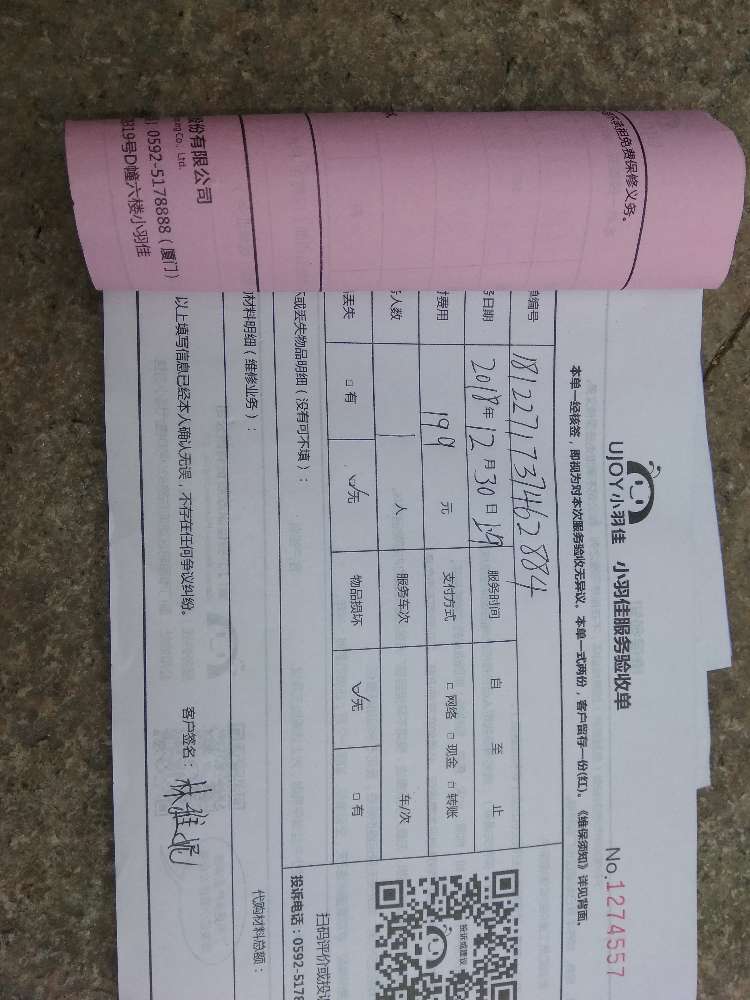 UJOY小羽佳 小羽佳服务验收单
No.1274557
本单一经核签，即视为对本次服务验收无异议。本单一式两份，客户留存一份(红)。《维保须知》详见背面。
编号 181227173462884
日期 2018年12月30日 服务时间 自 至 止
费用 199 元 支付方式 □网络 □现金 □转账
人数 1 人 服务车次 车/次
丢失 □有 ☑无 物品损坏 ☑无 □有
或丢失物品明细（没有可不填）：
材料明细（维修业务）：
代购材料总额：
以上填写信息已经本人确认无误，不存在任何争议纠纷。 客户签名：
投诉或建议
扫码评价或投
投诉电话：0592-5178
承担免费保修义务。
份有限公司
Co., Ltd.
0592-5178888（厦门）
819号D幢六楼小羽佳